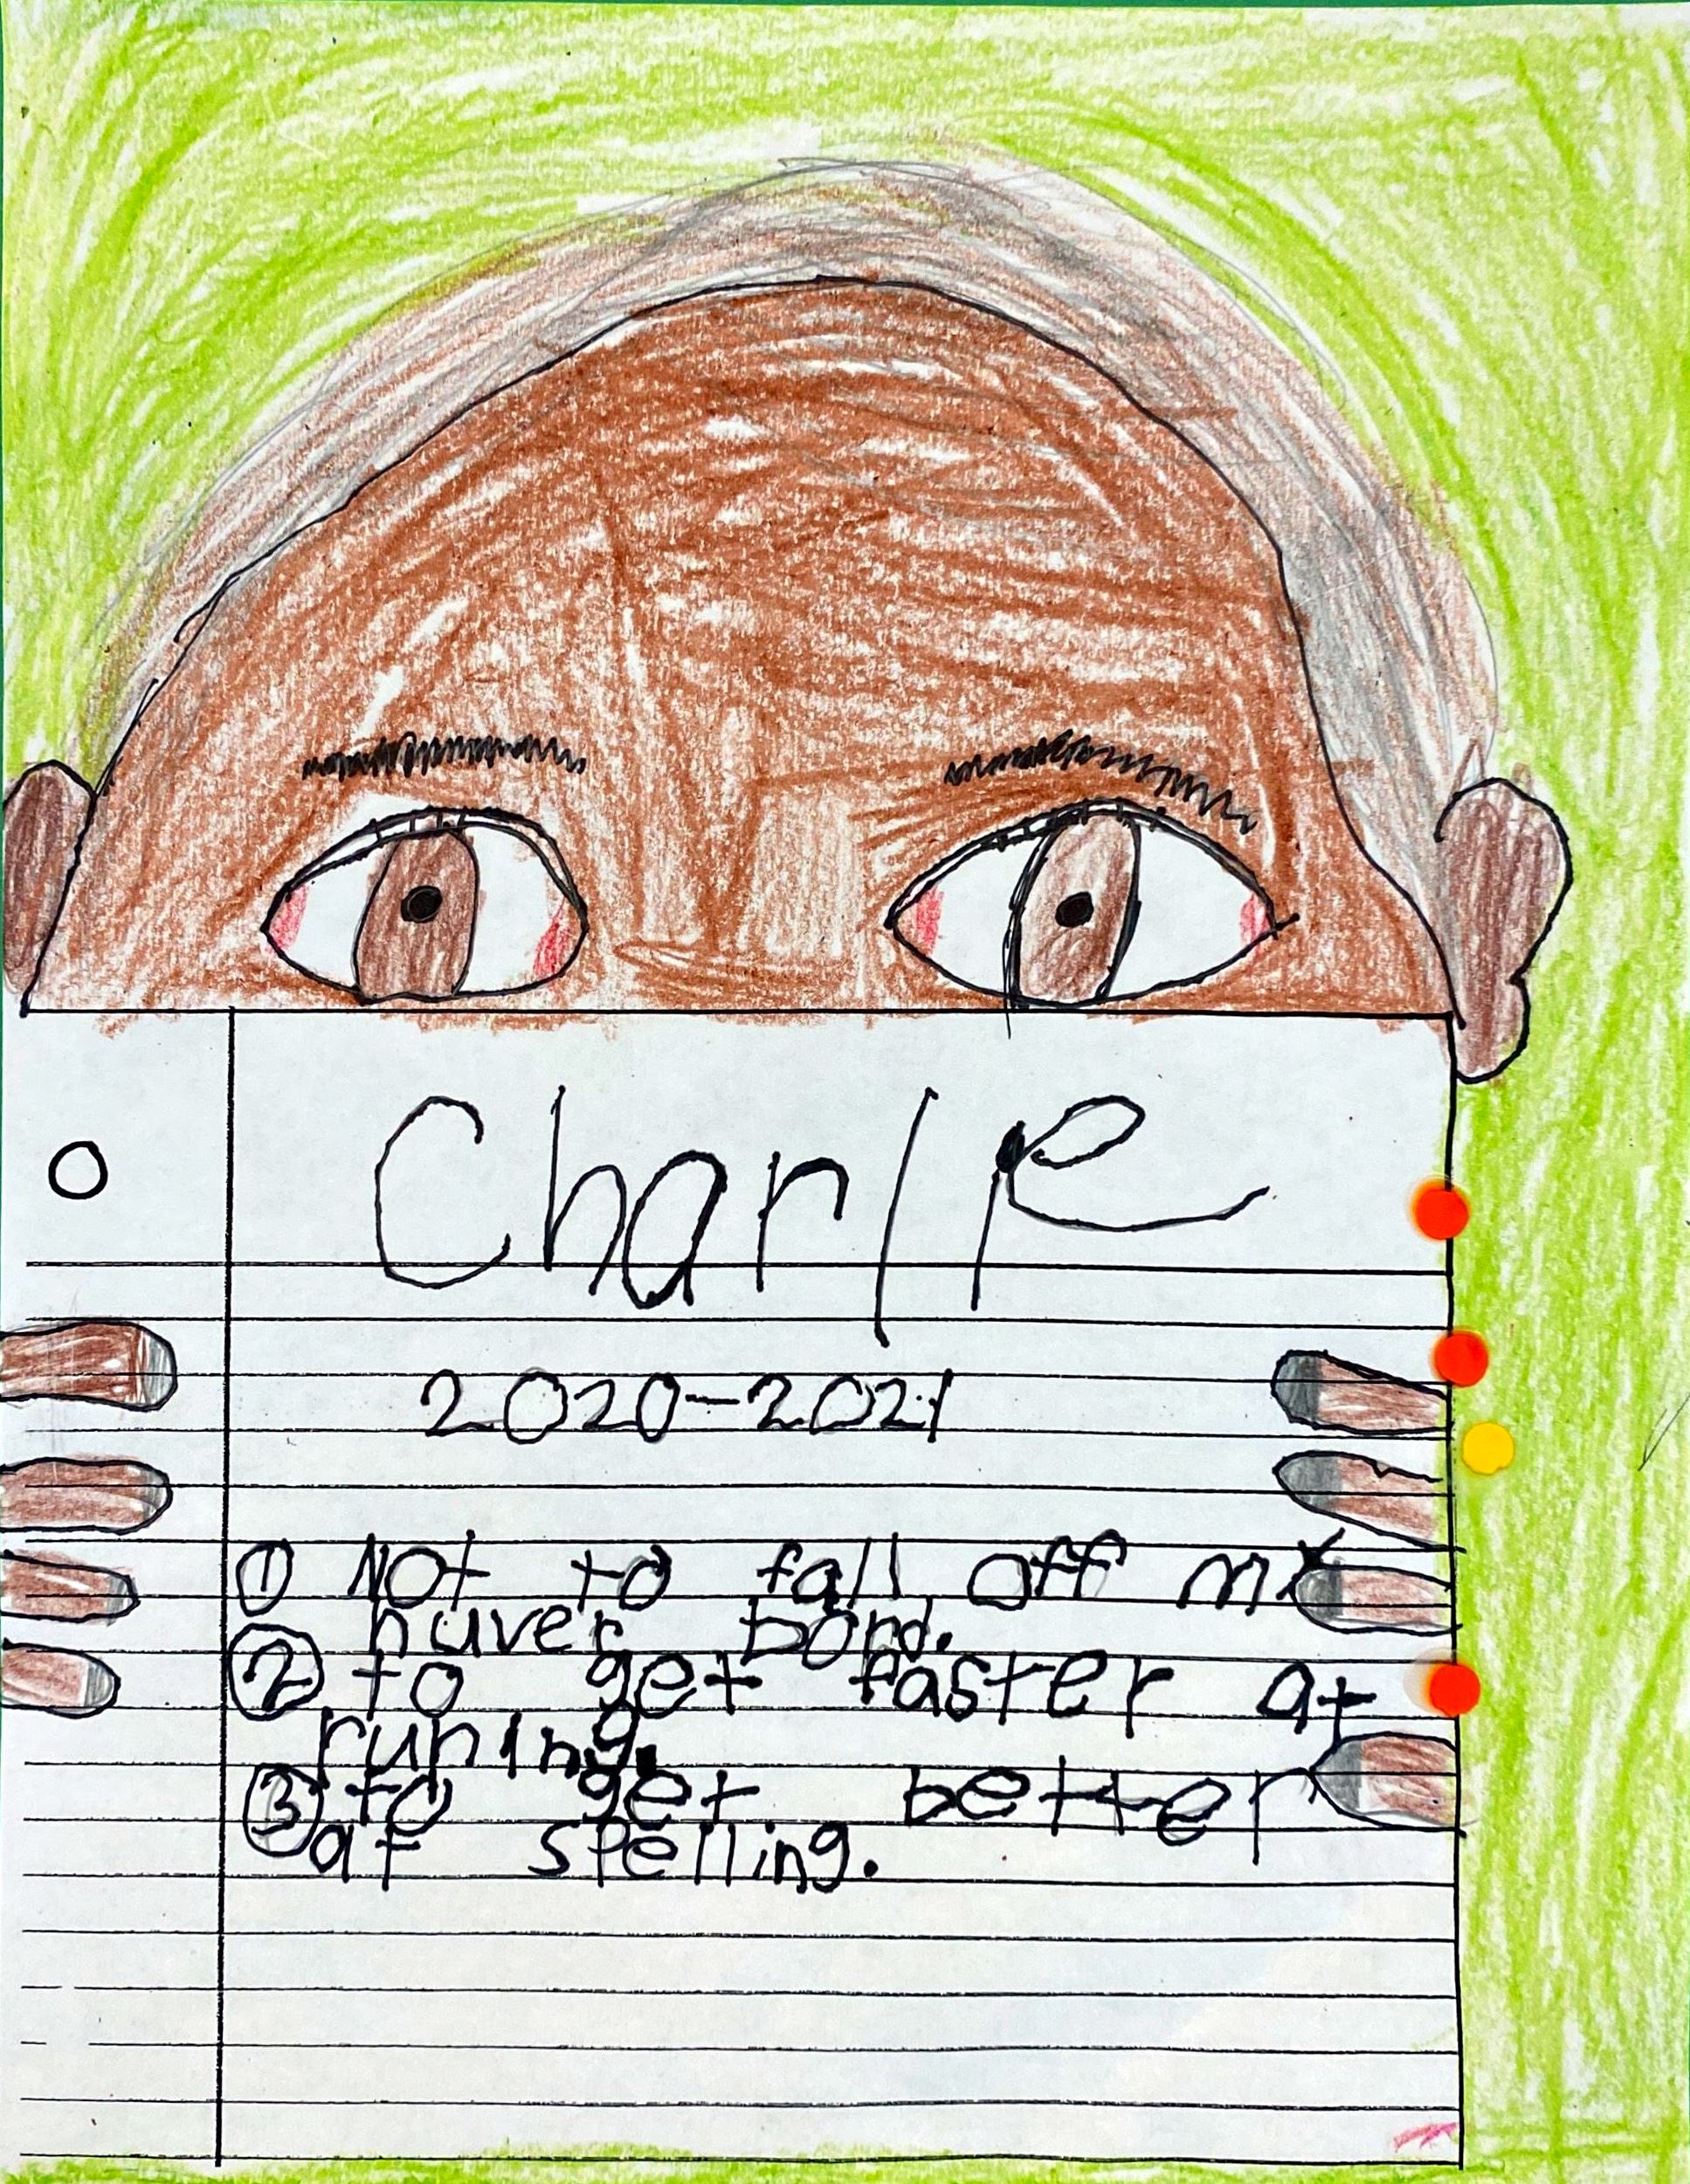 Charlie
2020-2021
① Not to fall off my
huver bord.
② to get faster at
runing.
③ to get better
at spelling.